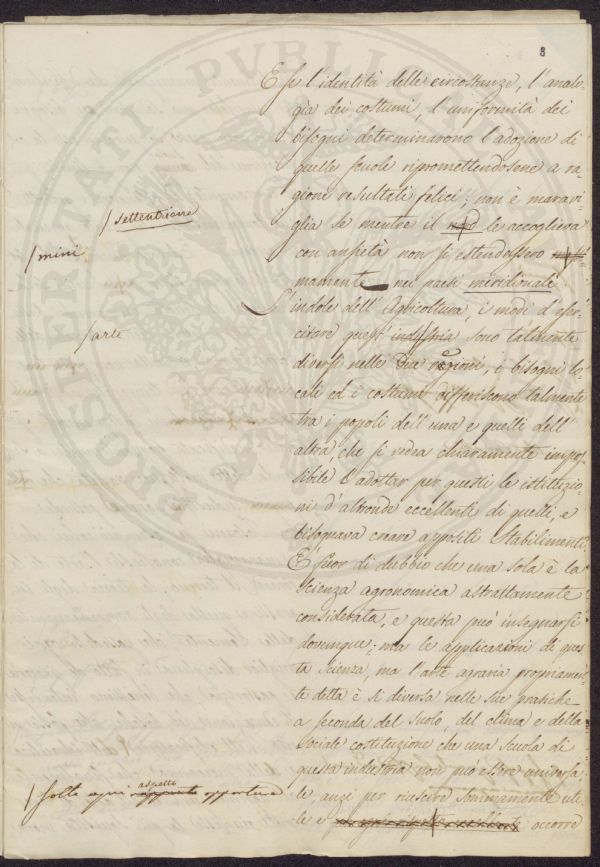 8
E se l'identità delle circostanze, l'analo-
gia dei costumi, l'uniformità dei
bisogni determinarono l'adozione di
quelle scuole ripromettendosene a ra-
gione resultati felici; non è maravi-
/settentrione
glia se mentre il nord le accoglieva
/mini
con ansietà non si estendessero
mamente nei paesi meridionali.
L'indole dell'Agricoltura, i modi d'eser-
/arte
citare quest' industria sono talmente
diversi nelle due regioni, i bisogni lo-
cali ed i costumi differiscono talmente
tra i popoli dell'una e quelli dell'
altra, che si vedea chiaramente impos-
sibile l'adottar per questi le istituzio-
ni d'altronde eccellente di quelli, e
bisognava creare appositi Stabilimenti.
È fuor di dubbio che una sola è la
scienza agronomica astrattamente
considerata, e questa può insegnarsi
dovunque; ma le applicazioni di ques-
ta scienza, ma l'arte agraria propriamen-
te detta è si diversa nelle sue pratiche
a seconda del suolo, del clima e della
sociale costituzione che una Scuola di
questa industria non può essere universa-
/sotto ogni aspetto opportuna
le, anzi per riuscire sommamente uti-
le e occorre
PROSPERITATI PVBLICAE